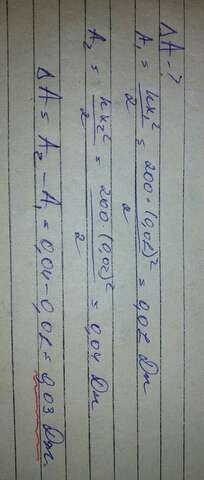 ΔA - ?
A₁ = kx₁²/2 = 200·(0,01)²/2 = 0,01 Дж
A₂ = kx₂²/2 = 200·(0,02)²/2 = 0,04 Дж
ΔA = A₂ - A₁ = 0,04 - 0,01 = 0,03 Дж